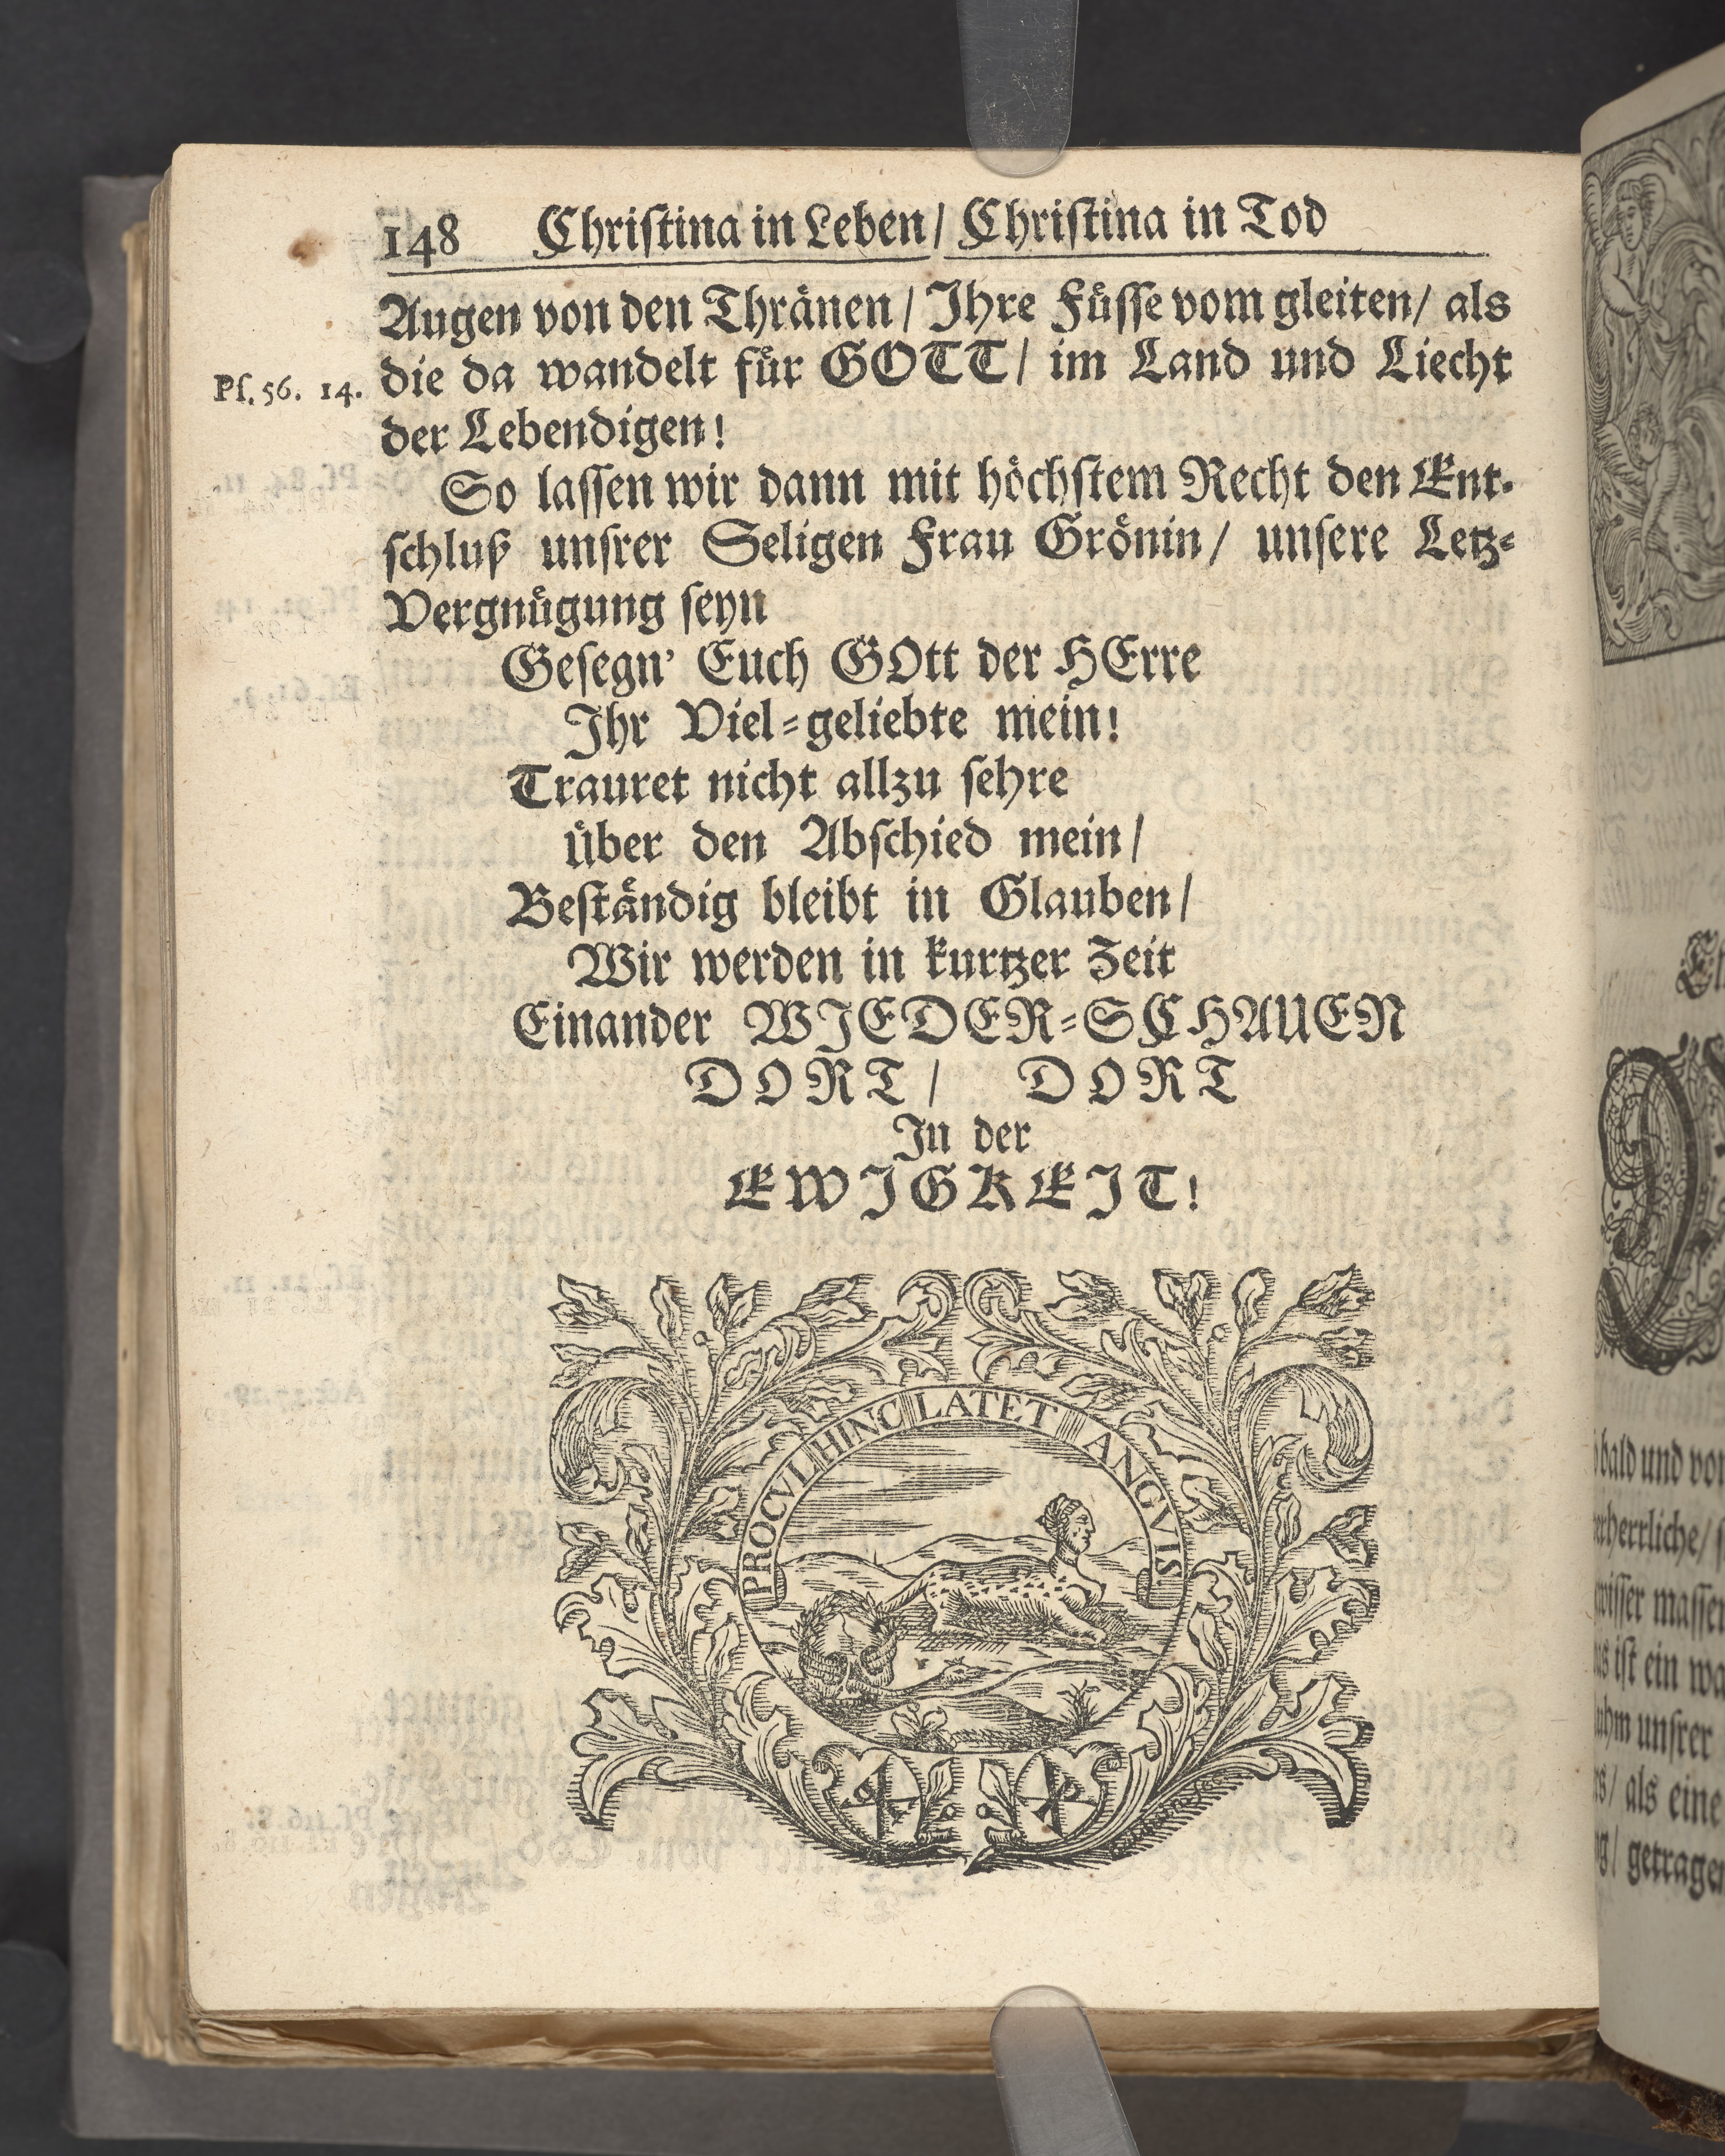 148 Chriſtina in Leben/ Chriſtina in Tod
Augen von den Thraͤnen/ Ihre Fuͤſſe vom gleiten/ als
Pſ. 56. 14. die da wandelt fuͤr GOTT/ im Land und Liecht
der Lebendigen!
So laſſen wir dann mit hoͤchſtem Recht den Ent-
ſchluß unſrer Seligen Frau Groͤnin/ unſere Letz-
Vergnuͤgung ſeyn
Geſegn' Euch GOtt der HErre
Ihr Viel-geliebte mein!
Trauret nicht allzu ſehre
uͤber den Abſchied mein/
Beſtaͤndig bleibt in Glauben/
Wir werden in kurtzer Zeit
Einander WIEDER-SCHAUEN
DORT/ DORT
In der
EWIGKEIT!
PROCVL HINC LATET ANGVIS
bald und vor
herrliche/
maſſen
iſt ein
unſrer
als eine
getragen